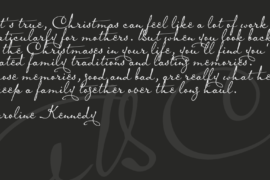 t's true, Christmas can feel like a lot of work,
rticularly for mothers. But when you look back
the Christmases in your life, you'll find you'
ated family traditions and lasting memories.
ose memories, good and bad, are really what he
eep a family together over the long haul.
aroline Kennedy